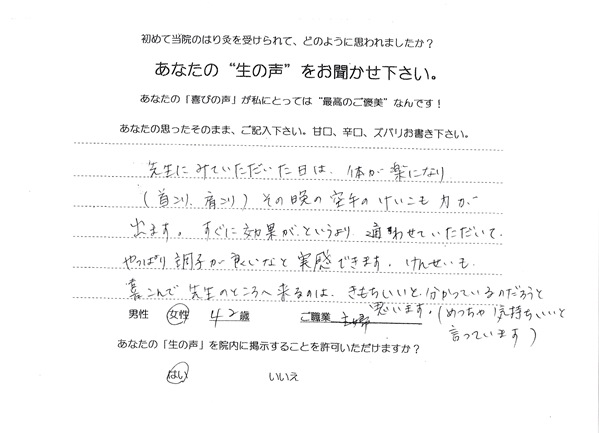 初めて当院のはり灸を受けられて、どのように思われましたか？
あなたの“生の声”をお聞かせ下さい。
あなたの「喜びの声」が私にとっては“最高のご褒美”なんです！
あなたの思ったそのまま、ご記入下さい。甘口、辛口、ズバリお書き下さい。
先生にみていただいた日は、体が楽になり
（首コリ、肩コリ）その晩の空手のけいこも力が
出ます。すぐに効果が、というより 通わせていただいて
やっぱり調子が良いなと実感できます。けんせいも
喜こんで先生のところへ来るのは、きもちいいと分かっているのだろうと
思います。（めっちゃ気持ちいいと
言っています）
男性 女性 42歳 ご職業 主婦
あなたの「生の声」を院内に掲示することを許可いただけますか？
はい いいえ